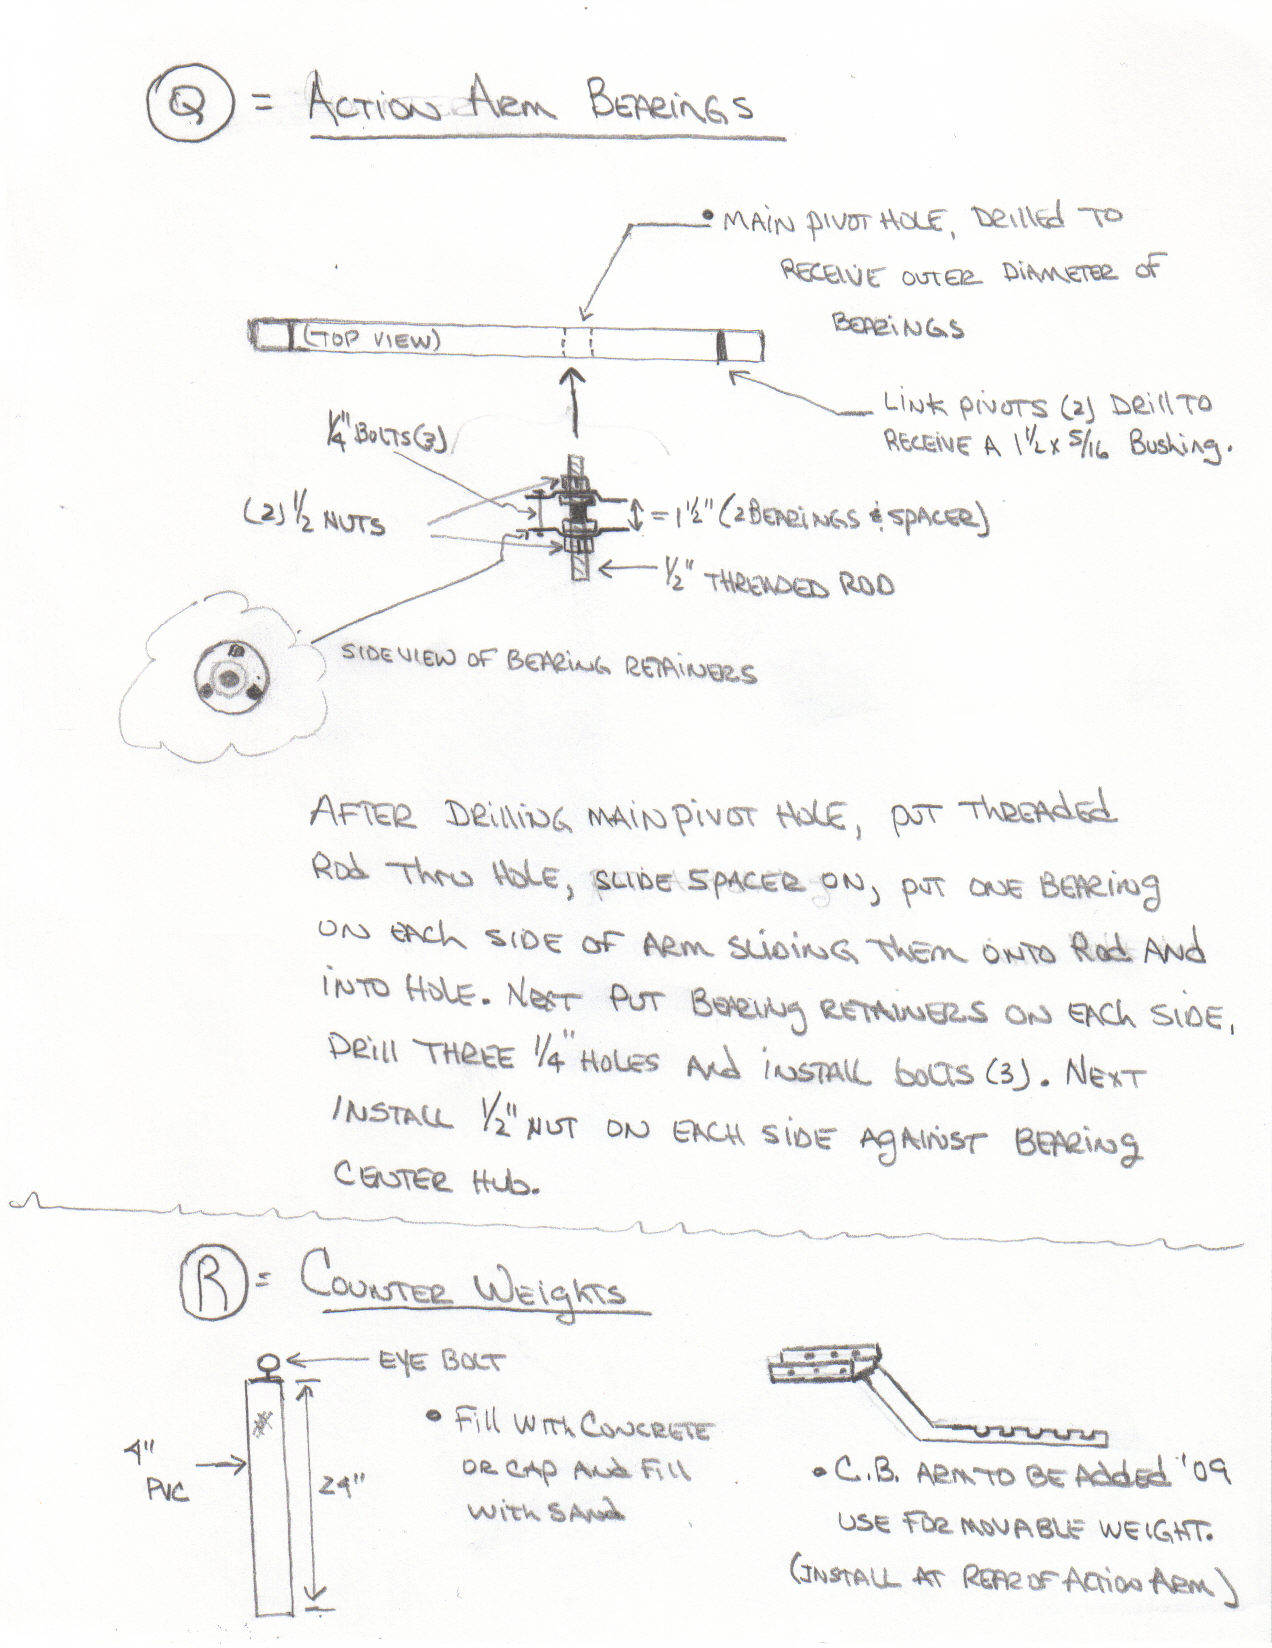 Q = Action Arm Bearings
• Main pivot hole, drilled to
receive outer diameter of
bearings
(Top View)
Link pivots (2) Drill to
receive a 1 1/2 x 5/16 Bushing.
1/4" Bolts (3)
(2) 1/2 Nuts
= 1 1/2" (2 Bearings & Spacer)
1/2" Threaded Rod
Side view of bearing retainers
After drilling main pivot hole, put threaded
Rod thru hole, slide spacer on, put one bearing
on each side of arm sliding them onto Rod and
into hole. Next put bearing retainers on each side,
Drill three 1/4" holes and install bolts (3). Next
install 1/2" nut on each side against bearing
center hub.
R = Counter Weights
Eye Bolt
• Fill with concrete
or cap and fill
with sand
4"
PVC
24"
• C.B. arm to be added '09
use for movable weight.
(Install at rear of Action Arm)